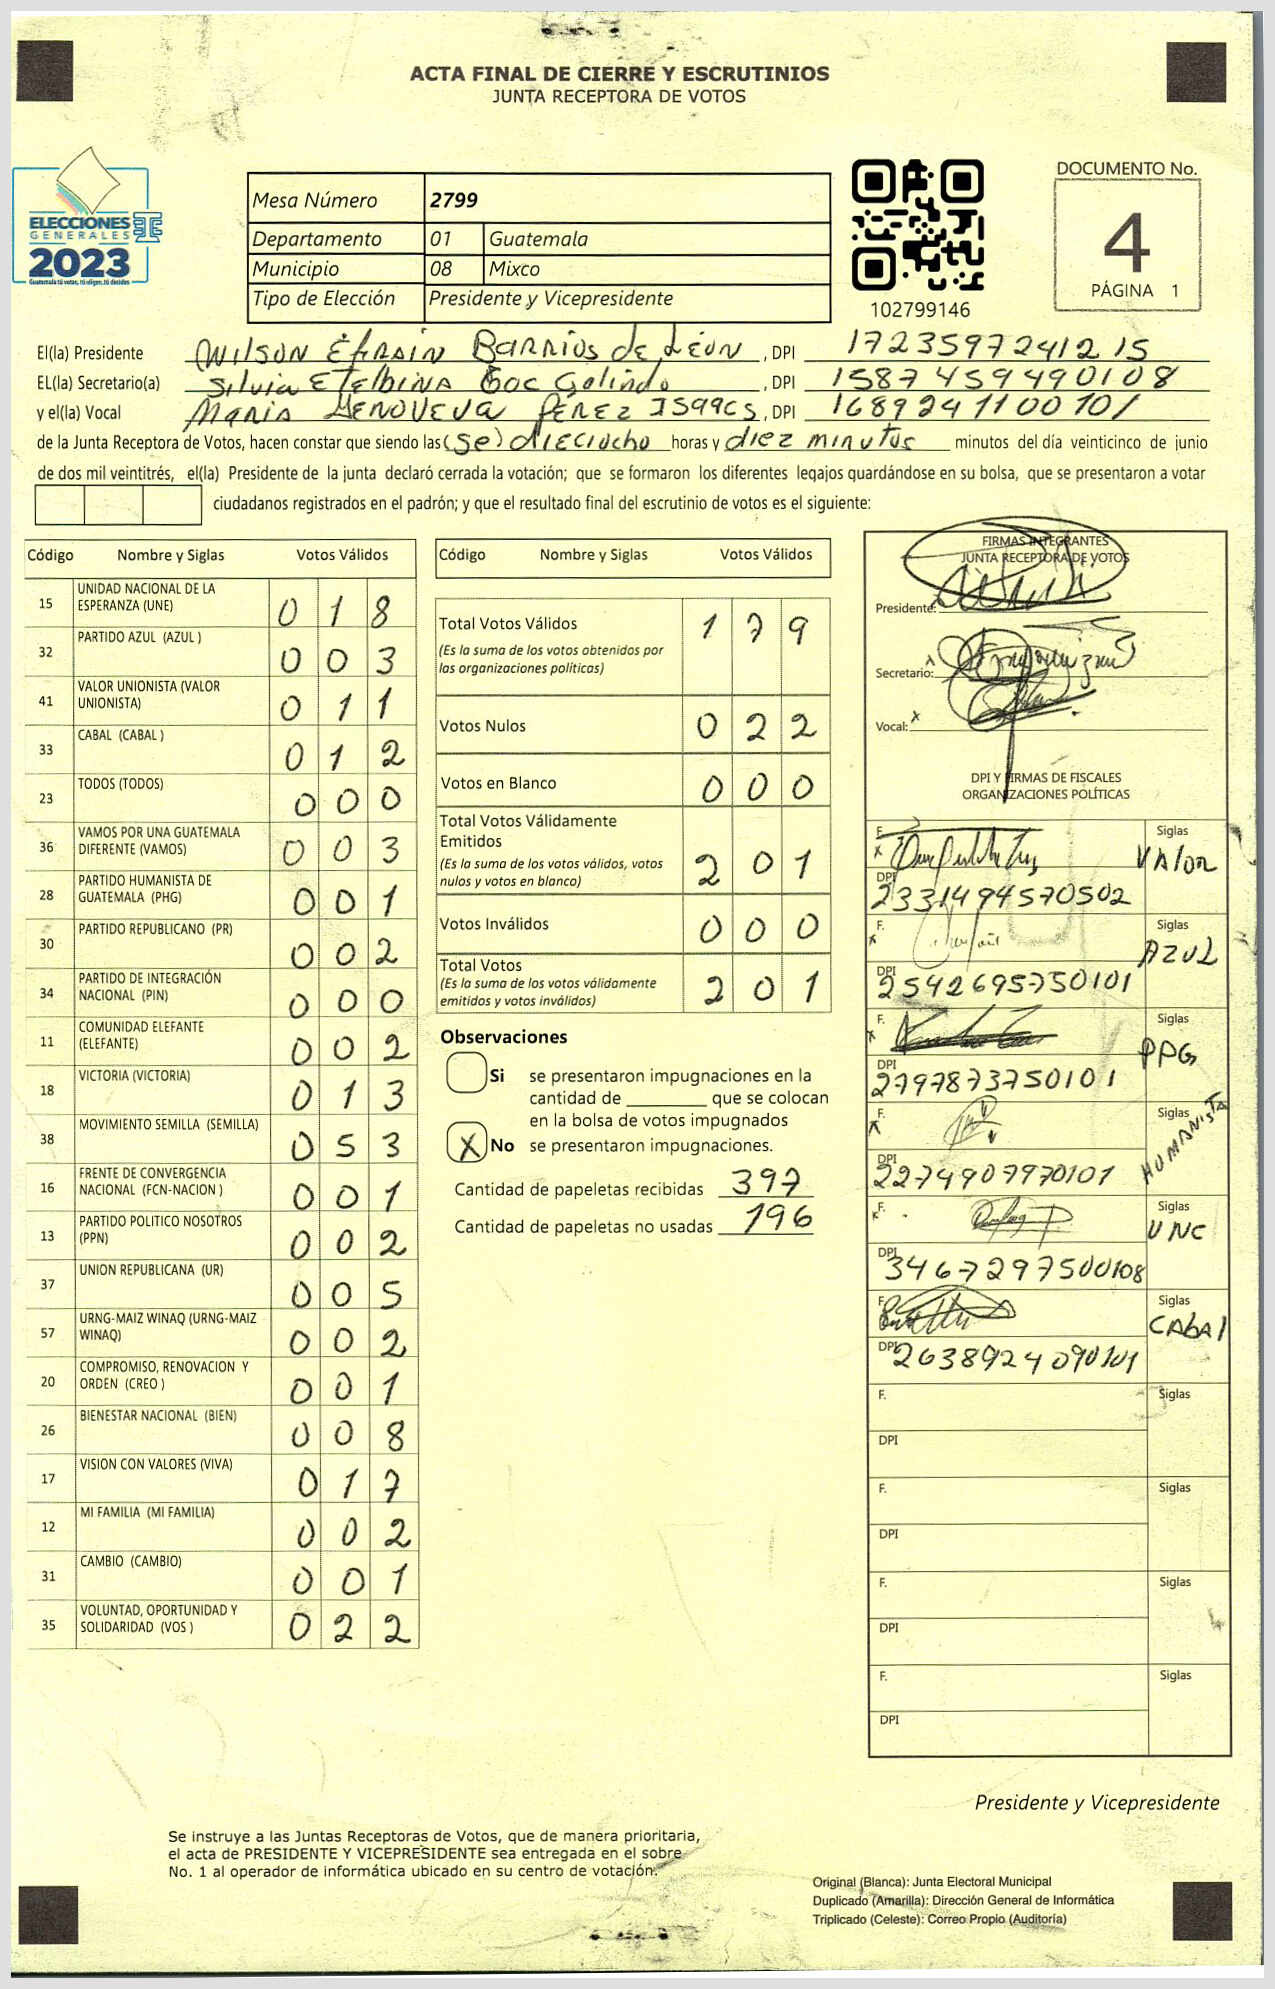 ACTA FINAL DE CIERRE Y ESCRUTINIOS
JUNTA RECEPTORA DE VOTOS
ELECCIONES
GENERALES
2023
Guatemala tú votas, tú eliges, tú decides
Mesa Número 2799
Departamento 01 Guatemala
Municipio 08 Mixco
Tipo de Elección Presidente y Vicepresidente
102799146
DOCUMENTO No.
4
PÁGINA 1
El(la) Presidente Wilson Efraín Barrios de León, DPI 1723597241215
EL(la) Secretario(a) Silvia Etelbina Coc Galindo, DPI 1587459490108
y el(la) Vocal María Genoveva Pérez Isaacs, DPI 1689241100101
de la Junta Receptora de Votos, hacen constar que siendo las (se) dieciocho horas y diez minutos minutos del día veinticinco de junio
de dos mil veintitrés, el(la) Presidente de la junta declaró cerrada la votación; que se formaron los diferentes legajos guardándose en su bolsa, que se presentaron a votar
ciudadanos registrados en el padrón; y que el resultado final del escrutinio de votos es el siguiente:
Código Nombre y Siglas Votos Válidos
15 UNIDAD NACIONAL DE LA ESPERANZA (UNE) 0 1 8
32 PARTIDO AZUL (AZUL ) 0 0 3
41 VALOR UNIONISTA (VALOR UNIONISTA) 0 1 1
33 CABAL (CABAL ) 0 1 2
23 TODOS (TODOS) 0 0 0
36 VAMOS POR UNA GUATEMALA DIFERENTE (VAMOS) 0 0 3
28 PARTIDO HUMANISTA DE GUATEMALA (PHG) 0 0 1
30 PARTIDO REPUBLICANO (PR) 0 0 2
34 PARTIDO DE INTEGRACIÓN NACIONAL (PIN) 0 0 0
11 COMUNIDAD ELEFANTE (ELEFANTE) 0 0 2
18 VICTORIA (VICTORIA) 0 1 3
38 MOVIMIENTO SEMILLA (SEMILLA) 0 5 3
16 FRENTE DE CONVERGENCIA NACIONAL (FCN-NACION ) 0 0 1
13 PARTIDO POLITICO NOSOTROS (PPN) 0 0 2
37 UNION REPUBLICANA (UR) 0 0 5
57 URNG-MAIZ WINAQ (URNG-MAIZ WINAQ) 0 0 2
20 COMPROMISO, RENOVACION Y ORDEN (CREO ) 0 0 1
26 BIENESTAR NACIONAL (BIEN) 0 0 8
17 VISION CON VALORES (VIVA) 0 1 7
12 MI FAMILIA (MI FAMILIA) 0 0 2
31 CAMBIO (CAMBIO) 0 0 1
35 VOLUNTAD, OPORTUNIDAD Y SOLIDARIDAD (VOS ) 0 2 2
Código Nombre y Siglas Votos Válidos
Total Votos Válidos 1 7 9
(Es la suma de los votos obtenidos por
las organizaciones políticas)
Votos Nulos 0 2 2
Votos en Blanco 0 0 0
Total Votos Válidamente
Emitidos 2 0 1
(Es la suma de los votos válidos, votos
nulos y votos en blanco)
Votos Inválidos 0 0 0
Total Votos 2 0 1
(Es la suma de los votos válidamente
emitidos y votos inválidos)
Observaciones
Si se presentaron impugnaciones en la
cantidad de ________ que se colocan
en la bolsa de votos impugnados
X No se presentaron impugnaciones.
Cantidad de papeletas recibidas 397
Cantidad de papeletas no usadas 196
FIRMAS INTEGRANTES
JUNTA RECEPTORA DE VOTOS
Presidente:
Secretario:
Vocal:
DPI Y FIRMAS DE FISCALES
ORGANIZACIONES POLÍTICAS
F. Siglas VALOR
DPI 2331494570502
F. Siglas AZUL
DPI 2542695750101
F. Siglas PPG
DPI 2797873750101
F. Siglas HUMANISTA
DPI 2274907970101
F. Siglas UNC
DPI 3467297500108
F. Siglas CABAL
DPI 2638924090101
F. Siglas
DPI
F. Siglas
DPI
F. Siglas
DPI
F. Siglas
DPI
Presidente y Vicepresidente
Se instruye a las Juntas Receptoras de Votos, que de manera prioritaria,
el acta de PRESIDENTE Y VICEPRESIDENTE sea entregada en el sobre
No. 1 al operador de informática ubicado en su centro de votación.
Original (Blanca): Junta Electoral Municipal
Duplicado (Amarilla): Dirección General de Informática
Triplicado (Celeste): Correo Propio (Auditoría)